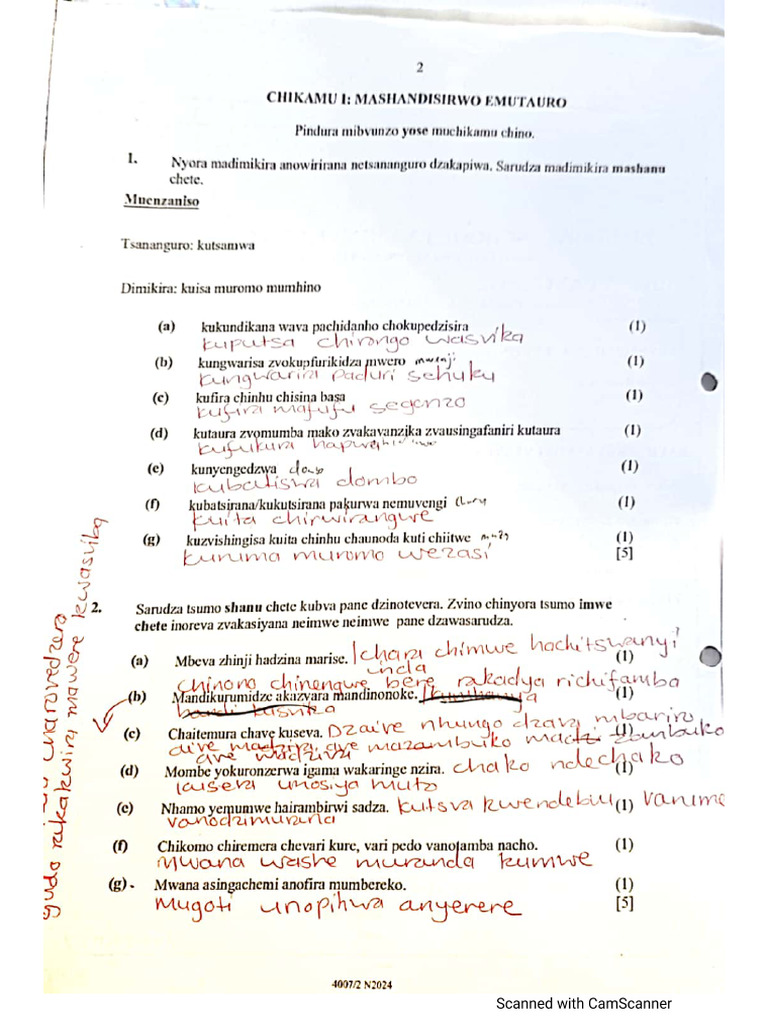 2
CHIKAMU I: MASHANDISIRWO EMUTAURO
Pindura mibvunzo yose muchikamu chino.
1. Nyora madimikira anowirirana netsananguro dzakapiwa. Sarudza madimikira mashanu
chete.
Muenzaniso
Tsananguro: kutsamwa
Dimikira: kuisa muromo mumhino
(a) kukundikana wava pachidanho chokupedzisira (1)
kuputsa chirongo wasvika
(b) kungwarisa zvokupfurikidza mwero (1)
kungwarira paduri sehuku
(c) kufira chinhu chisina basa (1)
kufira mafufu segonzo
(d) kutaura zvomumba mako zvakavanzika zvausingafaniri kutaura (1)
kufukura
(e) kunyengedzwa (1)
kubatiswa dombo
(f) kubatsirana/kukutsirana pakurwa nemuvengi (1)
kuita chirwirangwe
(g) kuzvishingisa kuita chinhu chaunoda kuti chiitwe (1)
kuruma muromo wezasi [5]
2. Sarudza tsumo shanu chete kubva pane dzinotevera. Zvino chinyora tsumo imwe
chete inoreva zvakasiyana neimwe neimwe pane dzawasarudza.
(a) Mbeva zhinji hadzina marise. Chara chimwe hachitswanyi (1)
inda
chinono chinengwe bere rakadya richifamba
(b) Mandikurumidze akazvara mandinonoke. (1)
(c) Chaitemura chave kuseva. Dzaive nhungo dzava mbariro (1)
aive madziva ave mazambuko
(d) Mombe yokuronzerwa igama wakaringe nzira. chako ndechako (1)
kusera unosiya muto
(e) Nhamo yemumwe hairambirwi sadza. kutsva kwendebvu (1) vanime
vanodzimurana
(f) Chikomo chiremera chevari kure, vari pedo vanotamba nacho. (1)
Mwana washe muranda kumwe
(g) - Mwana asingachemi anofira mumbereko. (1)
Mugoti unopihwa anyerere [5]
gudo rakakwira mawere kwasvika
4007/2 N2024
Scanned with CamScanner